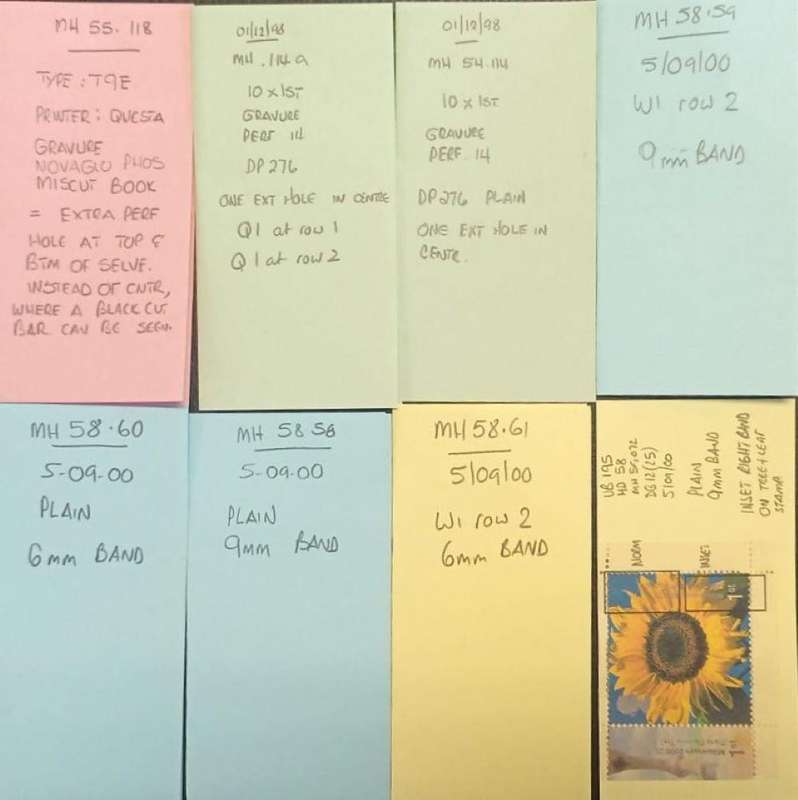 MH 55.118
TYPE: T9E
PRINTER: QUESTA
GRAVURE
NOVAGLO PHOS
MISCUT BOOK
= EXTRA PERF
HOLE AT TOP &
BTM OF SELVE.
INSTEAD OF CNTR,
WHERE A BLACK CUT
BAR CAN BE SEEN.
01/12/98
MH .114a
10 x 1ST
GRAVURE
PERF 14
DP276
ONE EXT HOLE IN CENTRE
Q1 at row 1
Q1 at row 2
01/12/98
MH 54.114
10 x 1ST
GRAVURE
PERF. 14
DP276 PLAIN
ONE EXT HOLE IN
CENTR.
MH 58.59
5/09/00
W1 row 2
9mm BAND
MH 58.60
5-09-00
PLAIN
6mm BAND
MH 58 58
5-09-00
PLAIN
9mm BAND
MH 58.61
5/09/00
W1 row 2
6mm BAND
UB 195
HD 58
DG12(25)
5/09/00
PLAIN
9mm BAND
INSET RIGHT BAND
ON TREE + LEAF
STAMP
NORM
INSET
1st